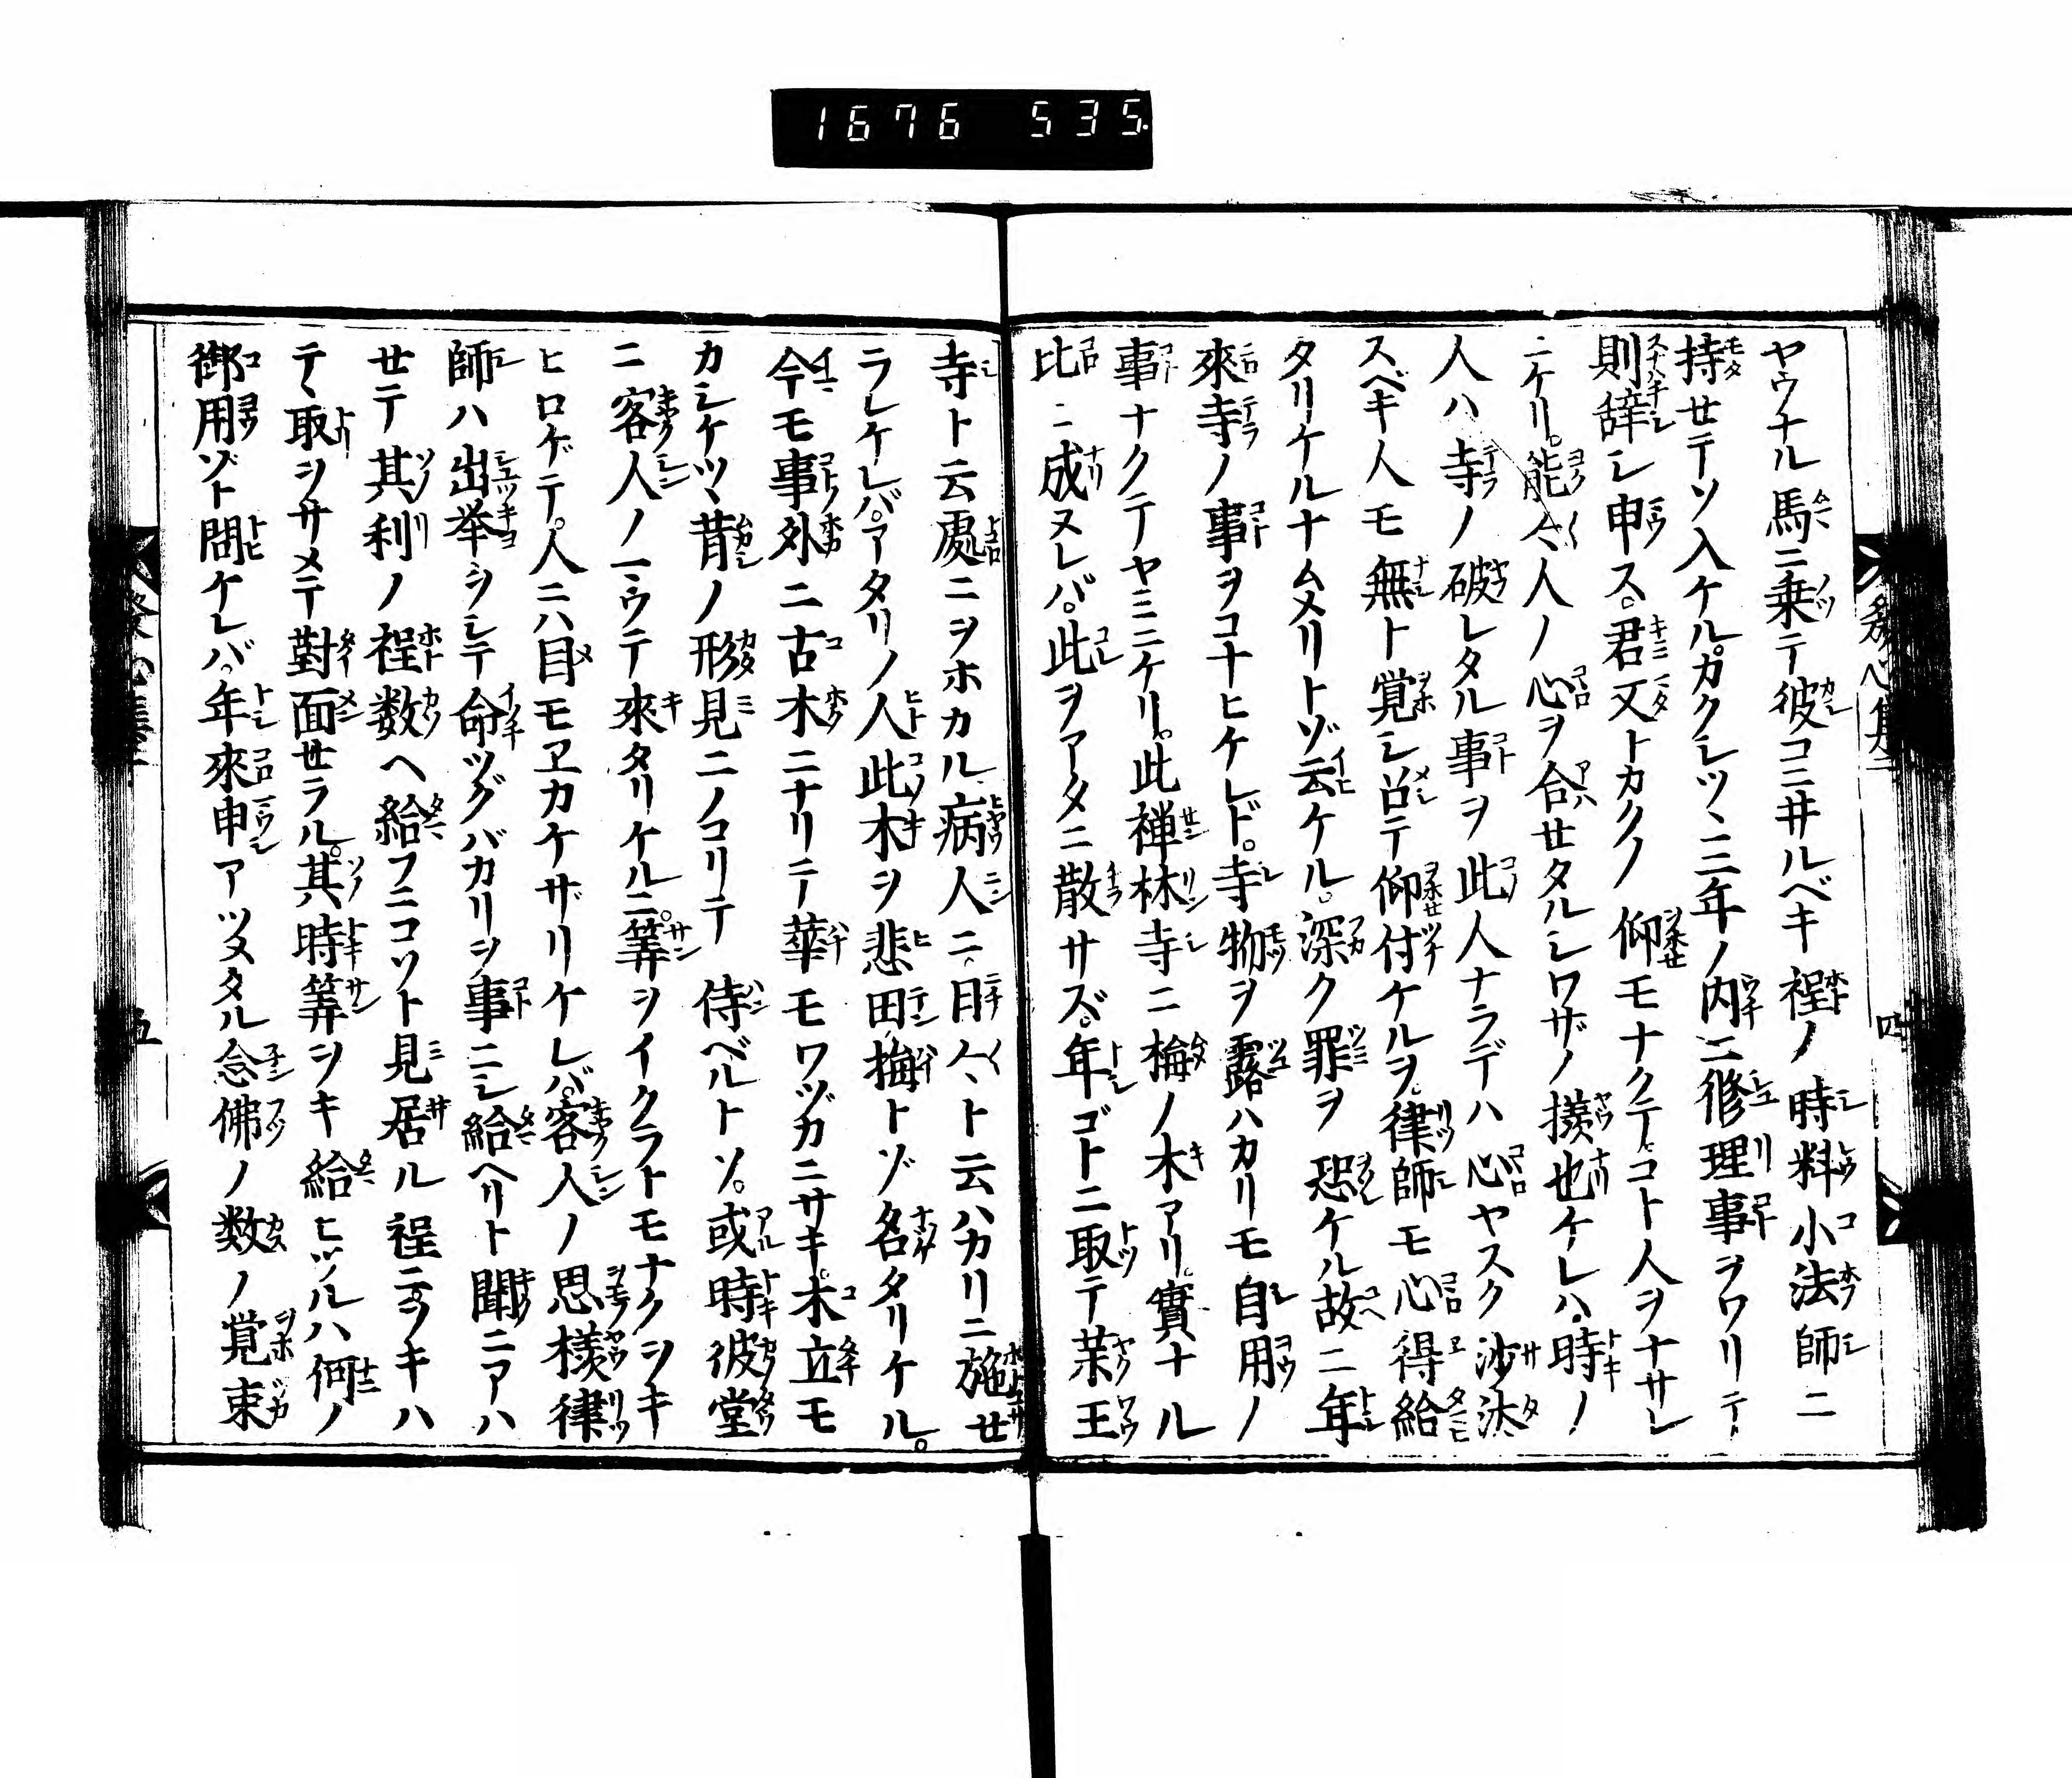 1676 535
発心集二
四
ヤウナル馬ニ乗テ彼コニ井ルベキ程ノ時料小法師ニ
持セテソ入ケル。カクシツヽ三年ノ内ニ修理事ヲワリテ
則辞シ申ス。君又トカクノ仰モナクテ。コト人ヲナサレ
ニケリ。能々人ノ心ヲ合セタルシワザノ様也ケレハ。時ノ
人ハ寺ノ破レタル事ヲ此人ナラデハ心ヤスク沙汰
スベキ人モ無ト覚シ召テ仰付ケルヲ。律師モ心得給
タリケルナムメリトゾ云ケル。深ク罪ヲ恐ケル故ニ年
來寺ノ事ヲコナヒケレド。寺物ヲ露ハカリモ自用ノ
事ナクテヤミニケリ。此禅林寺ニ梅ノ木アリ。實ナル
比ニ成ヌレバ。此ヲアタニ散サズ。年ゴトニ取テ薬王
寺ト云處ニヲホカル病人ニ。日々ト云ハカリニ施セ
ラレケレバ。アタリノ人此木ヲ悲田梅トゾ名タリケル。
今モ事外ニ古木ニナリテ華モワヅカニサキ。木立モ
カシケツヽ昔ノ形見ニノコリテ侍ベルトソ。或時彼堂
ニ客人ノマウテ來タリケルニ。筭ヲイクラトモナクシキ
ヒロゲテ。人ニハ目モヱカケザリケレバ。客人ノ思様律
師ハ出挙ヲシテ命ツグバカリヲ事ニシ給ヘリト聞ニアハ
セテ其利ノ程数ヘ給フニコソト見居ル程ニヲキハ
テヽ取ヲサメテ對面セラル。其時筭ヲキ給ヒツルハ何ノ
御用ゾト問ケレバ。年來申アツメタル念佛ノ数ノ覚束
五